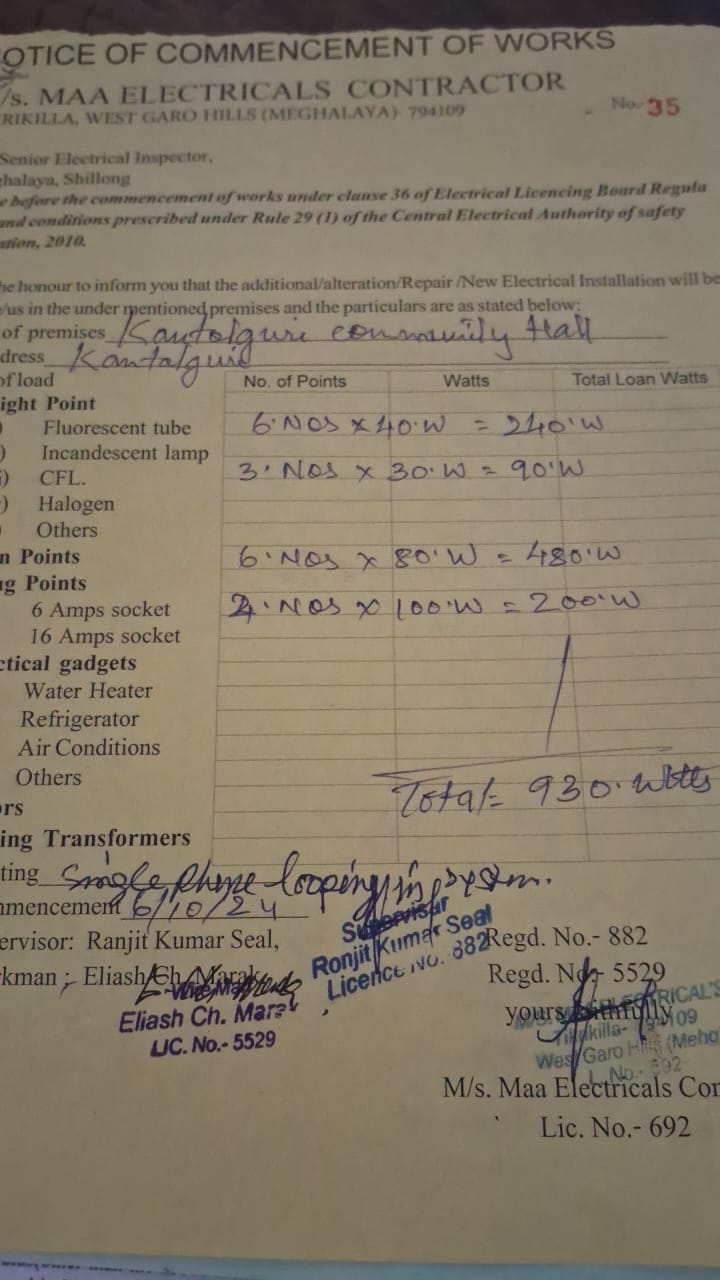 OTICE OF COMMENCEMENT OF WORKS
/s. MAA ELECTRICALS CONTRACTOR
RIKILLA, WEST GARO HILLS (MEGHALAYA) 794109
No. 35
Senior Electrical Inspector,
ghalaya, Shillong
e before the commencement of works under clause 36 of Electrical Licencing Board Regula
and conditions prescribed under Rule 29 (1) of the Central Electrical Authority of safety
ation, 2010.
he honour to inform you that the additional/alteration/Repair /New Electrical Installation will be
/us in the under mentioned premises and the particulars are as stated below:
of premises Kantolguri community Hall
dress Kantalguri
of load No. of Points Watts Total Loan Watts
ight Point
Fluorescent tube 6 Nos x 40.W = 240.W
Incandescent lamp
CFL. 3. Nos x 30.W = 90.W
Halogen
Others
n Points 6. Nos x 80.W = 480.W
ug Points
6 Amps socket 2. Nos x 100.W = 200.W
16 Amps socket
ctical gadgets
Water Heater
Refrigerator
Air Conditions
Others
Total = 930. Watts
ors
ing Transformers
ting Single Phase looping in system.
mmencement 6/10/24
ervisor: Ranjit Kumar Seal, Regd. No.- 882
Supervisor
Ronjit Kumar Seal
Licence No. 882
rkman : Eliash Ch. Marak Regd. No.- 5529
Eliash Ch. Marak
LIC. No.- 5529
yours faithfully
West Garo Hills (Megha
L. No.- 692
M/s. Maa Electricals Con
Lic. No.- 692